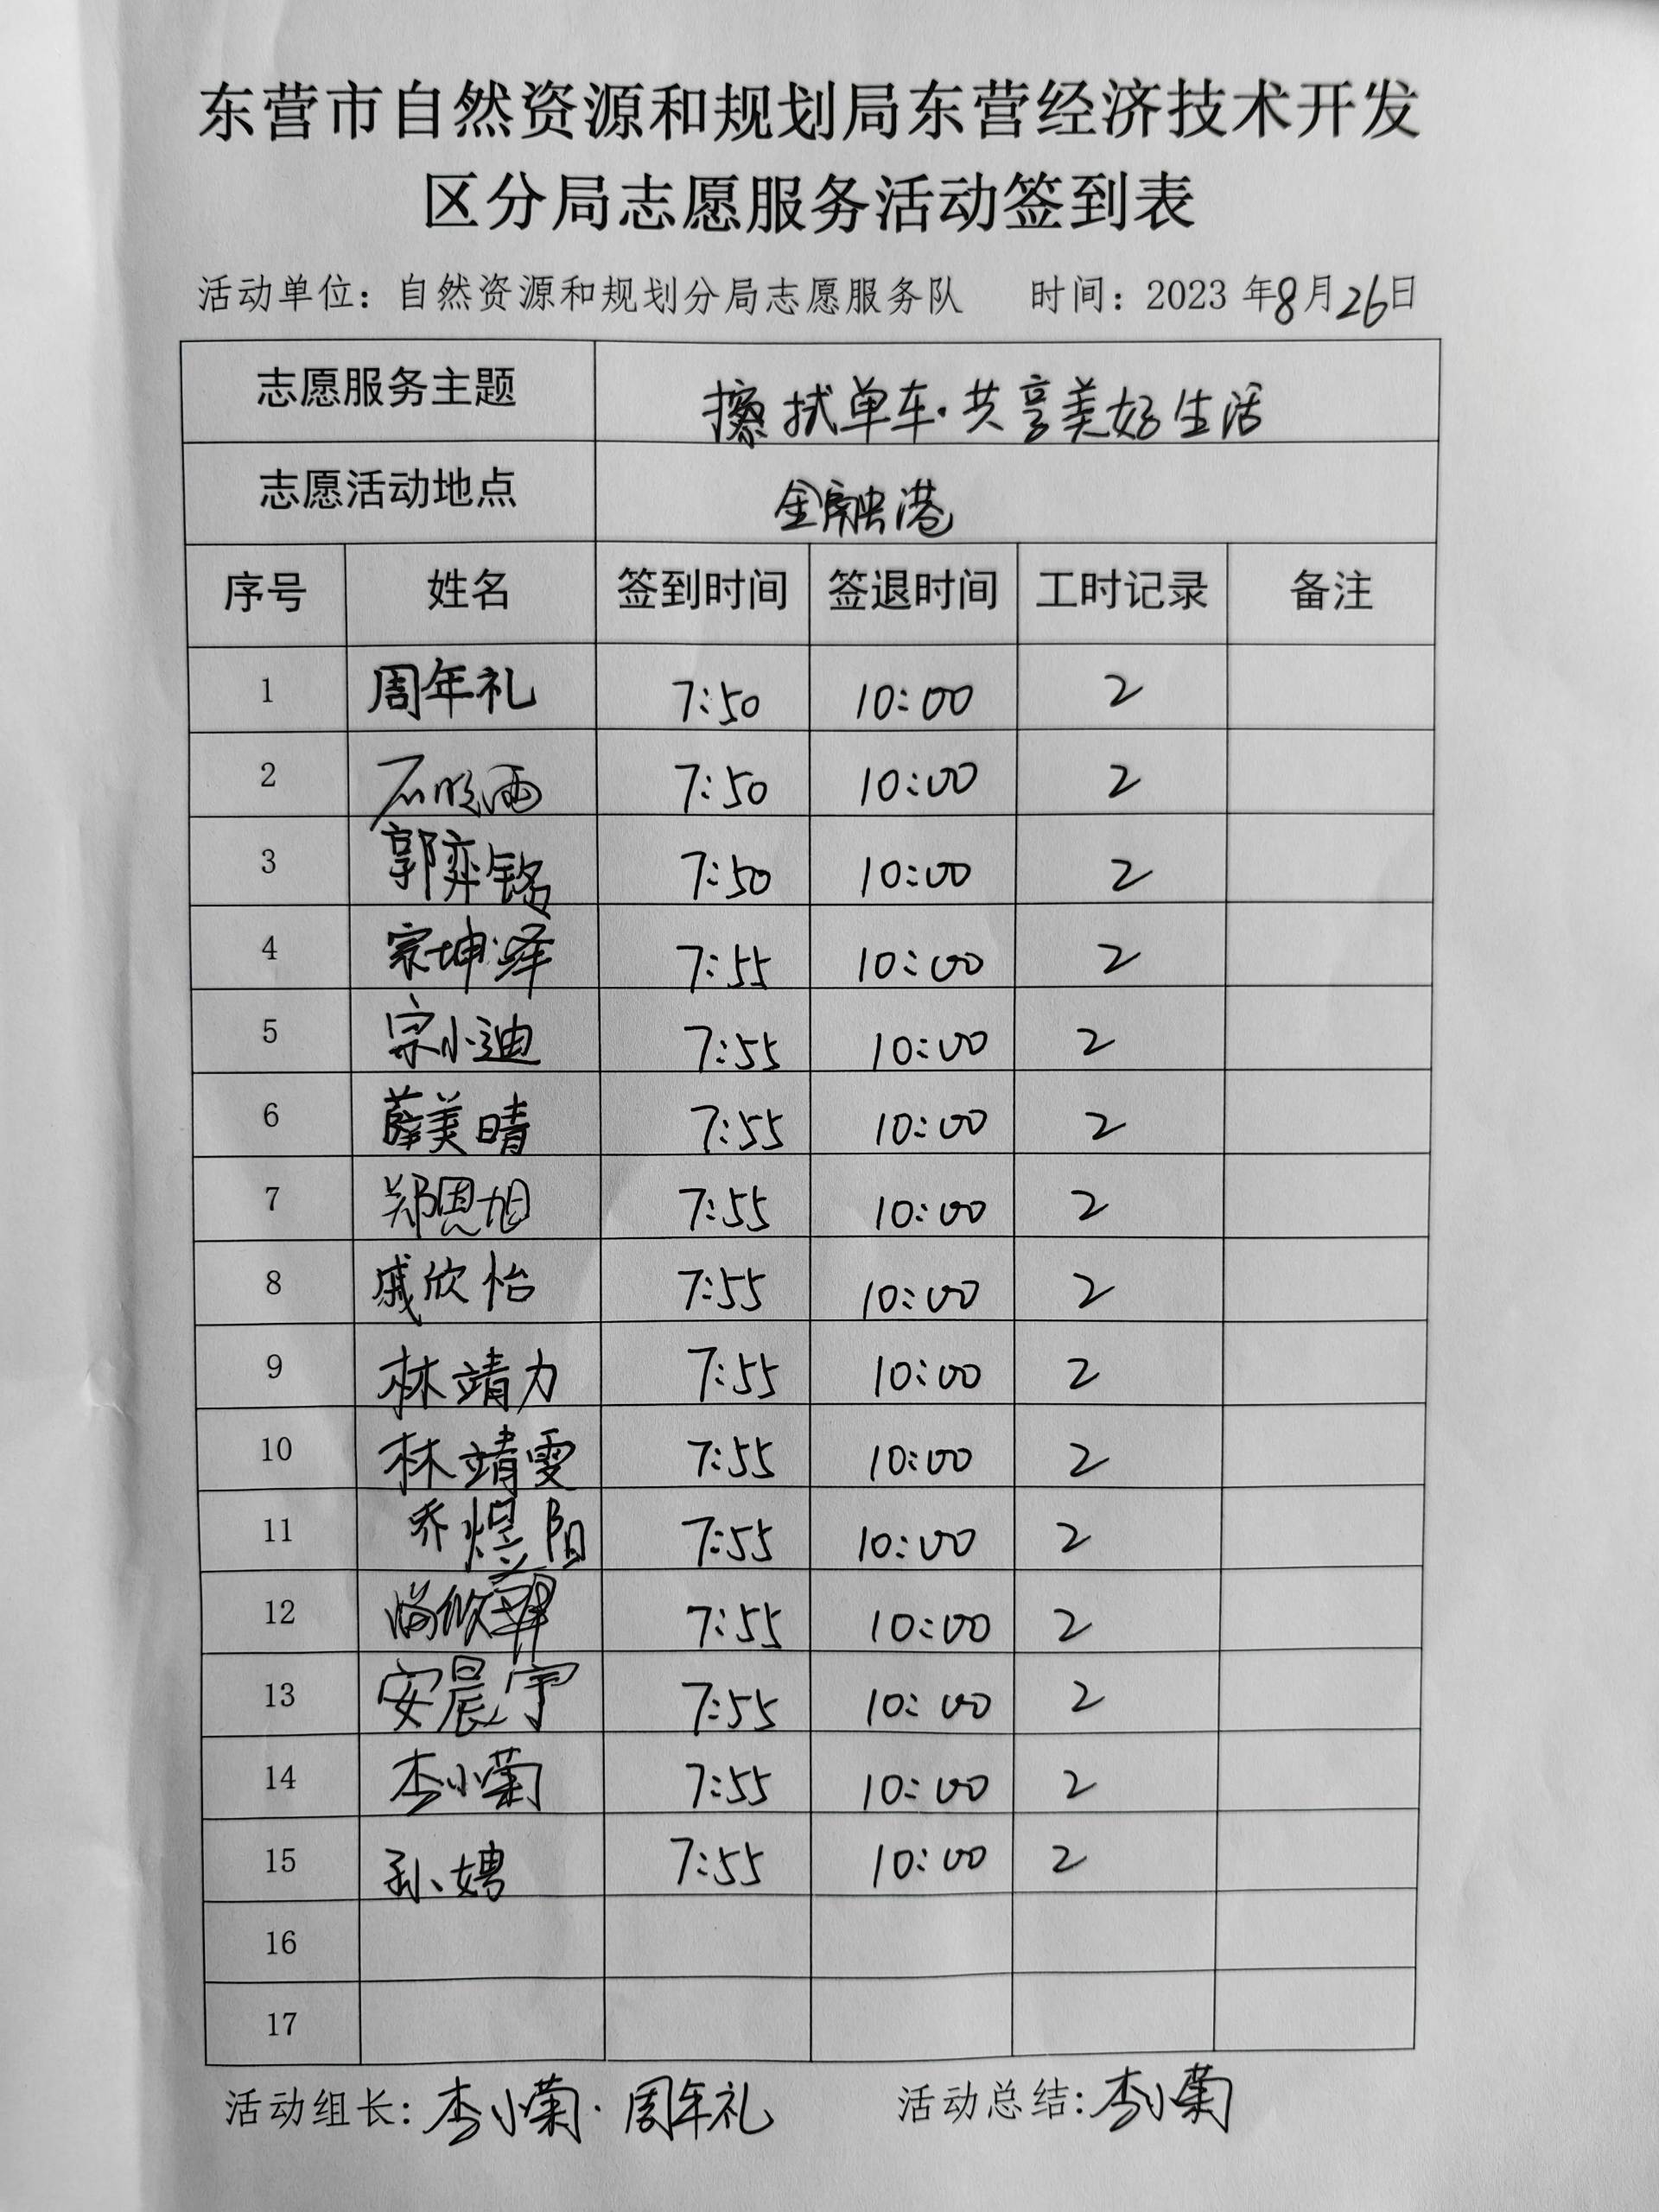 东营市自然资源和规划局东营经济技术开发
区分局志愿服务活动签到表
活动单位：自然资源和规划分局志愿服务队 时间：2023年8月26日
志愿服务主题 擦拭单车·共享美好生活
志愿活动地点 金融港
序号 姓名 签到时间 签退时间 工时记录 备注
1 周年礼 7:50 10:00 2
2 石晓雨 7:50 10:00 2
3 郭弈铭 7:50 10:00 2
4 宗坤泽 7:55 10:00 2
5 宗小迪 7:55 10:00 2
6 薛美晴 7:55 10:00 2
7 郑恩旭 7:55 10:00 2
8 戚欣怡 7:55 10:00 2
9 林靖力 7:55 10:00 2
10 林靖雯 7:55 10:00 2
11 乔煜阳 7:55 10:00 2
12 7:55 10:00 2
13 安晨宇 7:55 10:00 2
14 李小菊 7:55 10:00 2
15 孙娉 7:55 10:00 2
16
17
活动组长：李小菊·周年礼 活动总结：李小菊